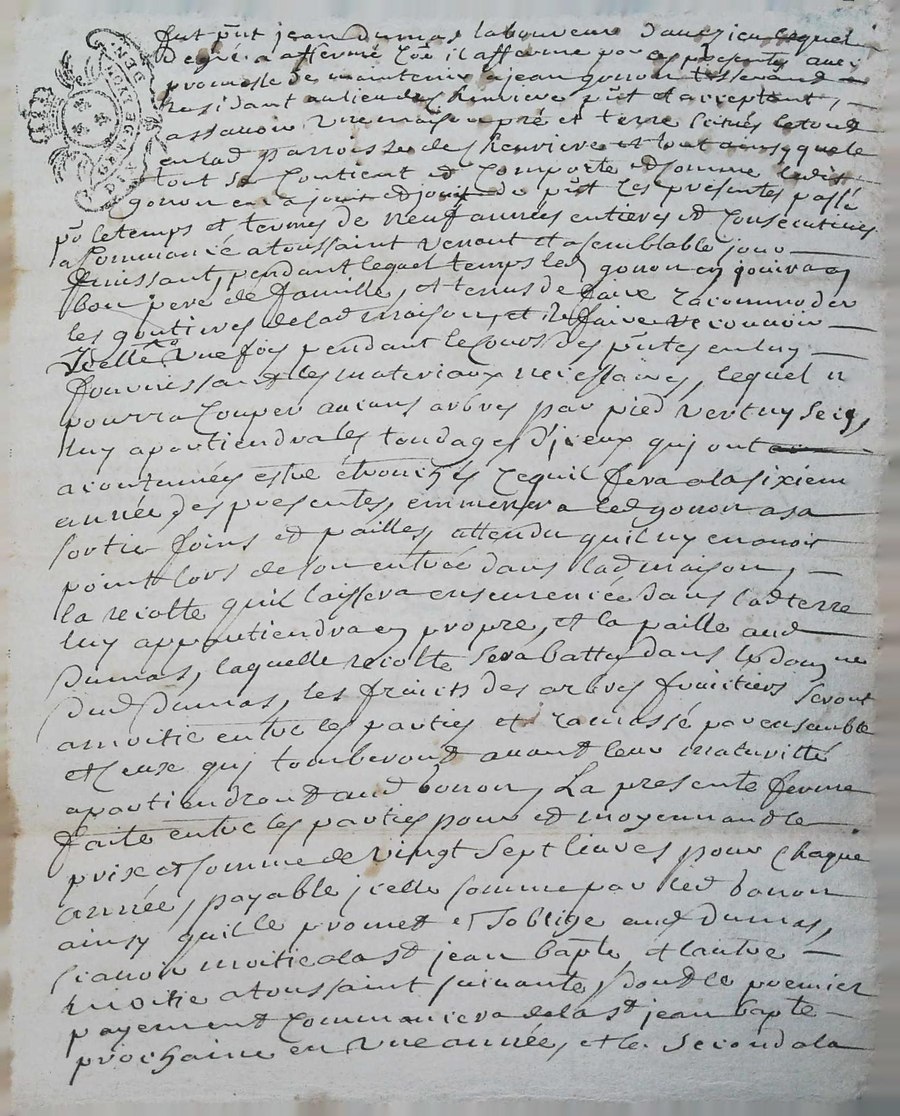 fut pñt jean Dumas laboureur dauzieu lequel
de gré a affermé Coe il afferme par ces presentes avec
promesse de maintenir a jean gonon tisserand
residant au lieu de Chenviere pñt et acceptant,
assavoir une maison pré et terre scitués le tout
en lad parroisse de Chenviere et tout ainsy que le
tout se Contient et Comporte et somme led
gonon en a joui et jouit de pñt Les presentes passé
pr le temps et termes de neuf années entieres et Consecutives
a Commancé a toussaint venant et a semblable jour
finissant, pendant lequel temps led gonon en jouira en
bon pere de famille, et tenus de faire racommoder
les goutieres de lad maison, et de faire recouvrir
Icelle une fois pendant le cours des pñtes en luy
fournissant les materiaux necessaires, lequel n
pourra Couper aucuns arbres par pied vert ny secq,
luy apartiendra les tondages d'iceux qui ont
acoutumés estre ébranchés Ce quil fera a la sixiem
année des presentes, emmenera led gonon a sa
sortie foins et pailles, attendu quil ny en avoit
point lors de son entrée dans lad maison,
la recolte quil laissera ensemencée dans lad terre
luy appartiendra en propre, et la paille aud
Dumas, laquelle recolte sera battu dans le domaine
dud Dumas, les fruits des arbres fruitiers seront
a moitié entre les parties et ramassé par ensemble
et Ceux qui tomberont avant leur maturitté
apartiendront aud bonon, La presente ferme
faite entre les parties pour et moyennant le
prix et somme de vingt sept livres pour chaque
année, payable icelle somme par led bonon
ainsy quil le promet et s'oblige aud Dumas,
scavoir moitié a la St jean bapte, et lautre
moitié a toussaint suivante, dont le premier
payement Commancera de la St jean bapte
prochaine en une année, et le second a la